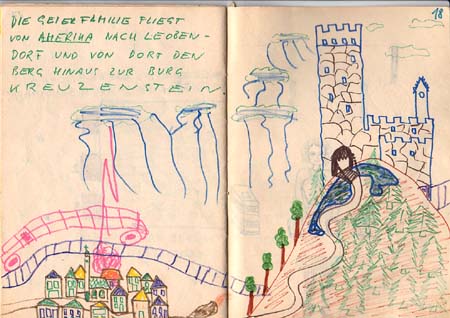 DIE GEIERFAMILIE FLIEGT
VON AMERIKA NACH LEOBEN-
DORF UND VON DORT DEN
BERG HINAUS ZUR BURG
KREUZENSTEIN
18